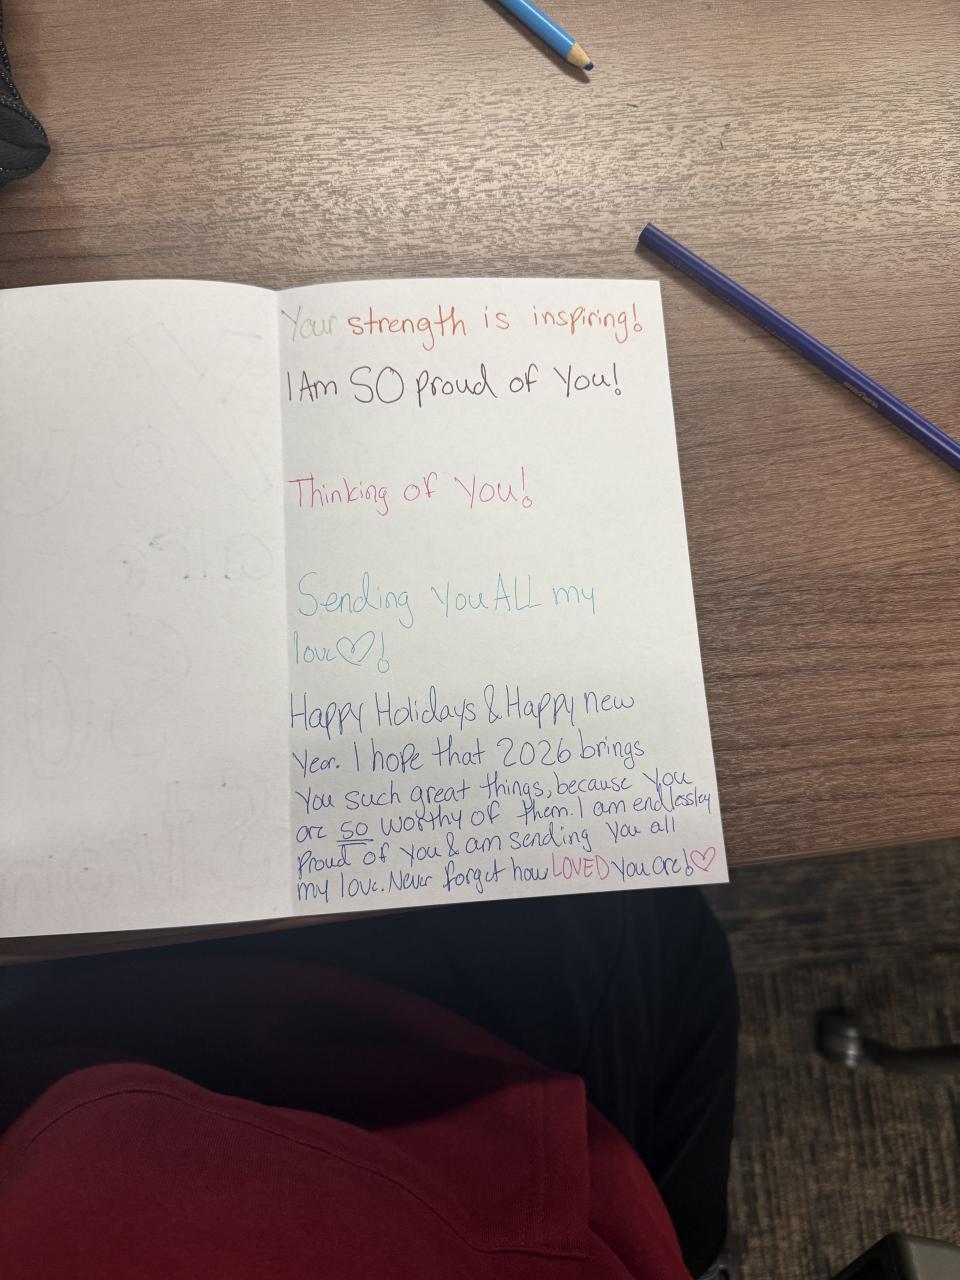 Your strength is inspiring!
I Am SO proud of You!
Thinking of You!
Sending You ALL my
love♡!
Happy Holidays & Happy new
Year. I hope that 2026 brings
You such great things, because You
are so worthy of them. I am endlessley
Proud of You & am sending You all
my love. Never forget how LOVED You are!♡